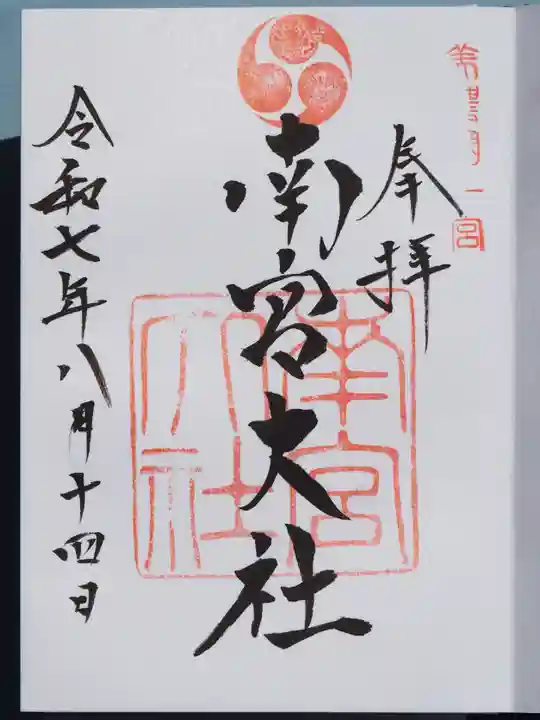 美濃国一宮
奉拝
南宮大社
南宮大社
令和七年八月十四日